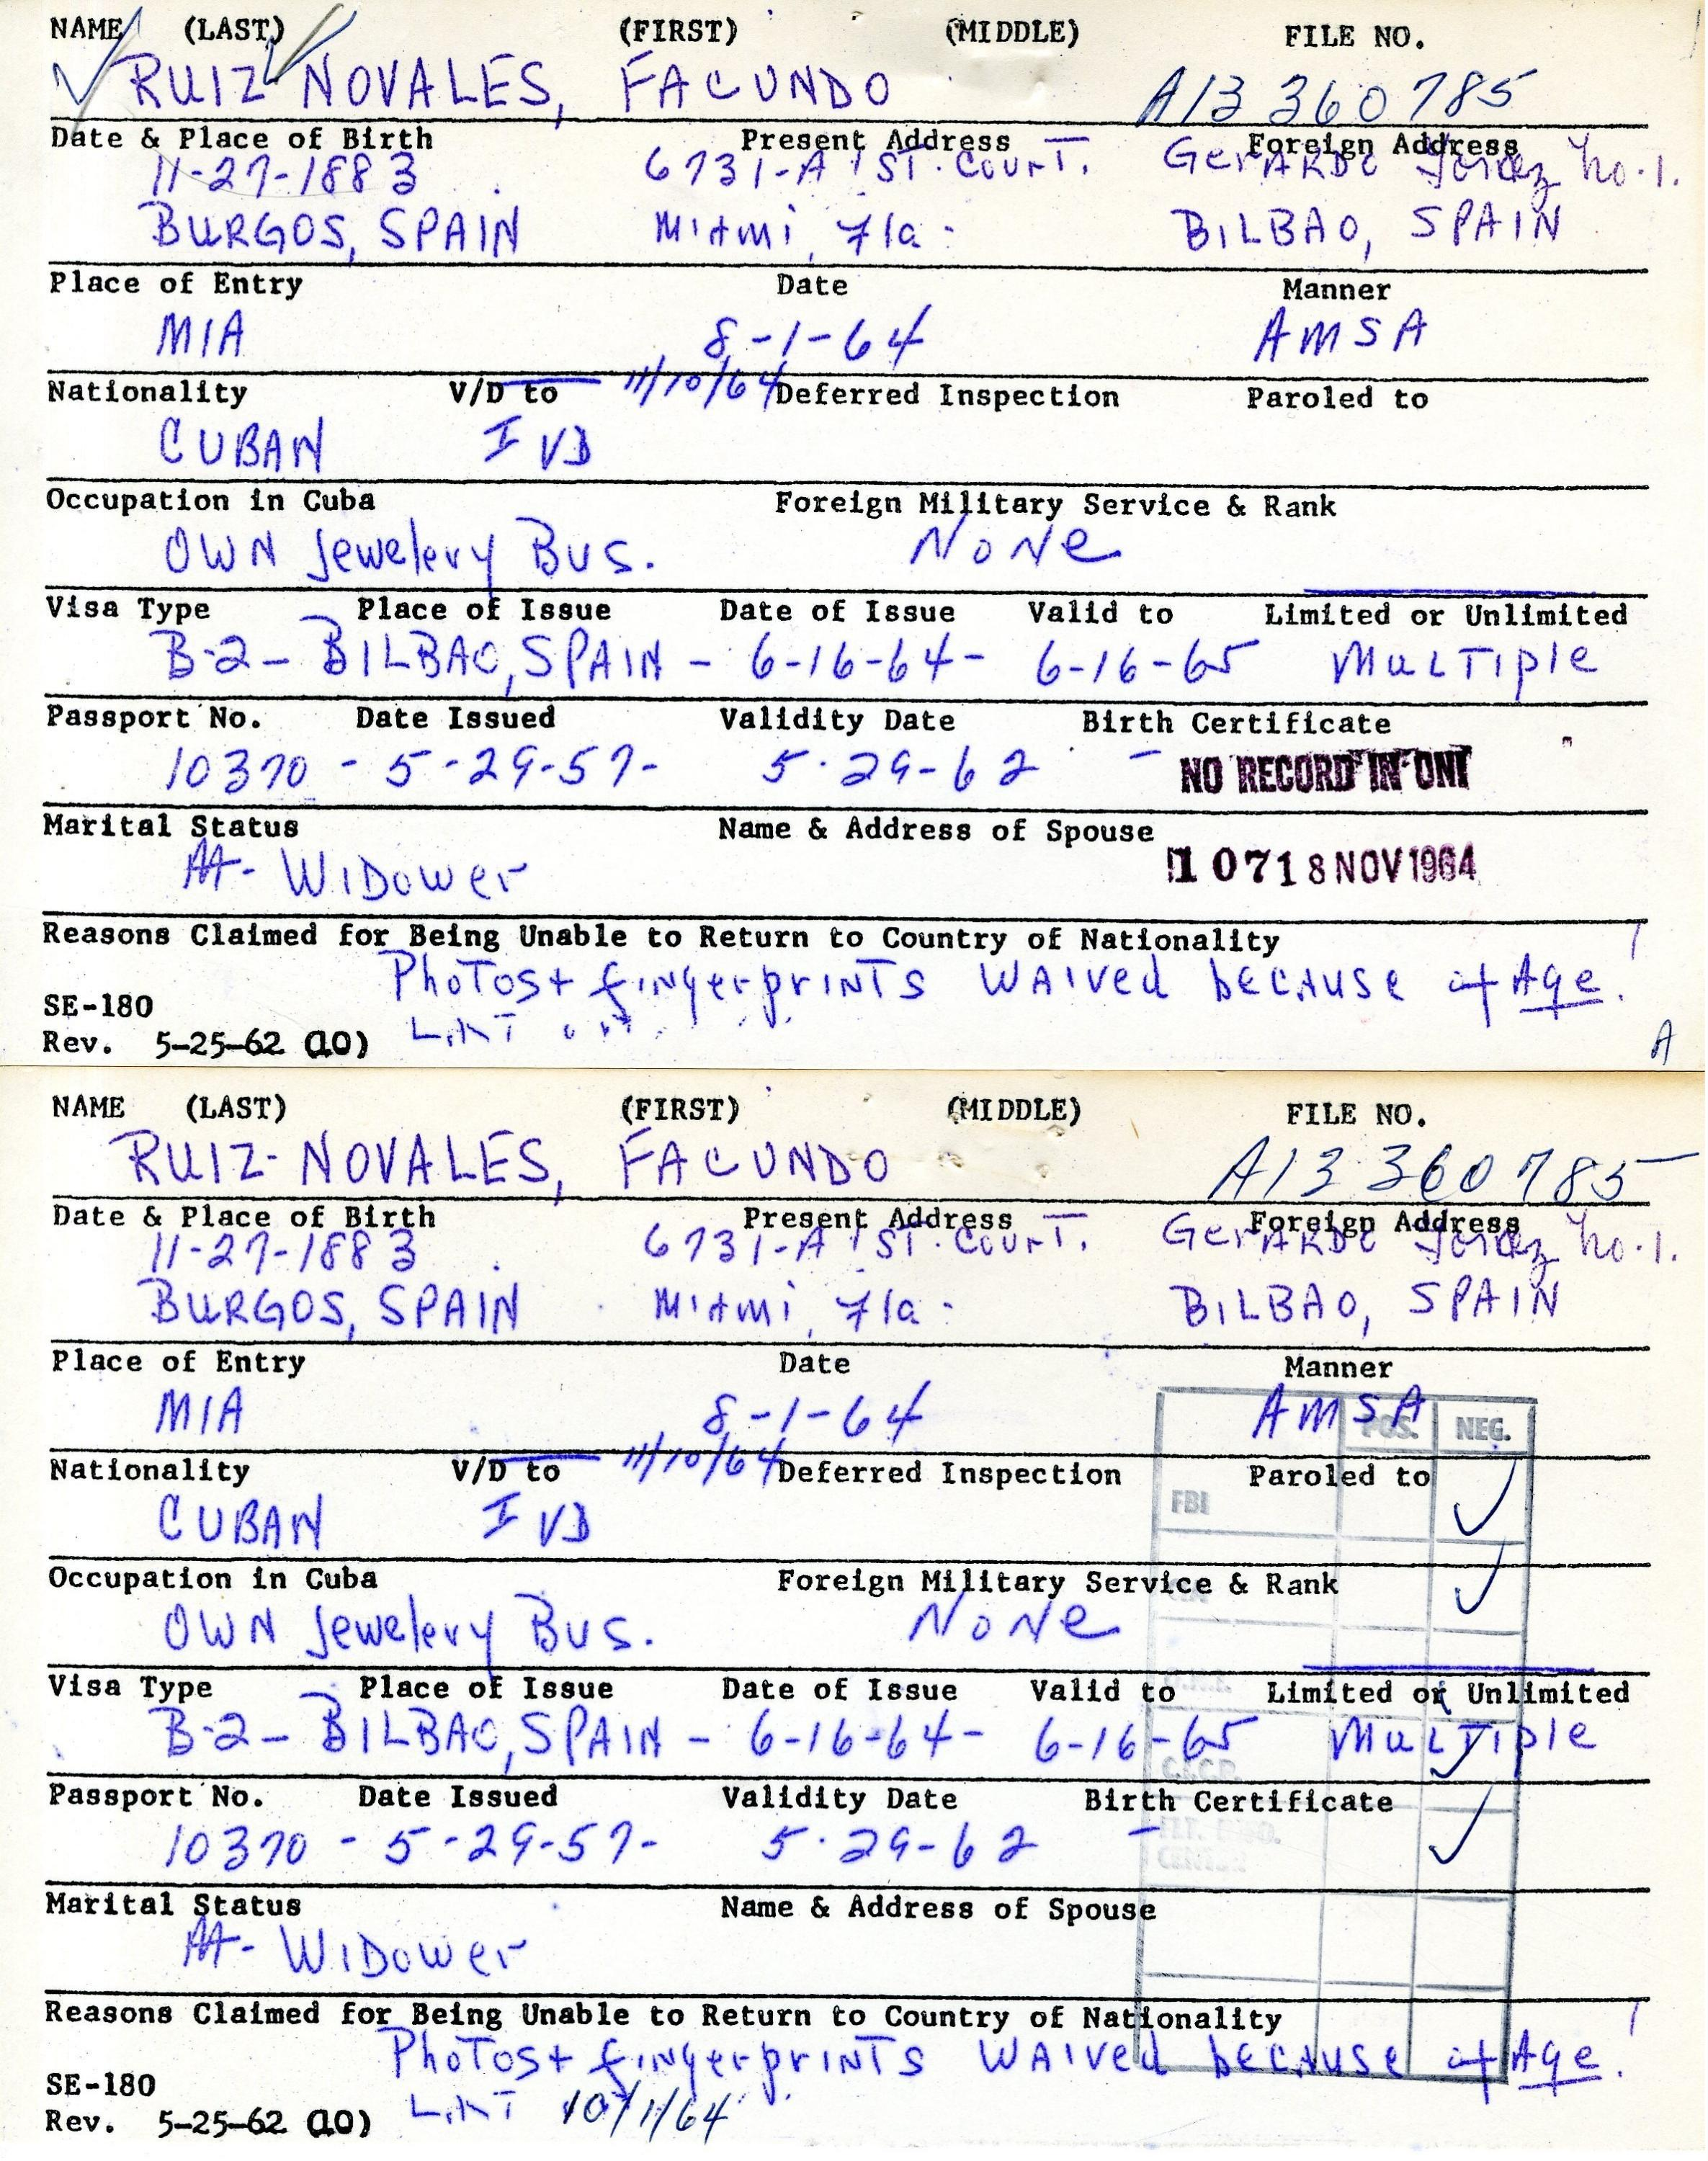 NAME (LAST) (FIRST) (MIDDLE) FILE NO.
RUIZ NOVALES, FACUNDO A13 360 785
Date & Place of Birth Present Address Foreign Address
11-27-1883 6731-A 1ST. COURT. GERARDO No. 1.
BURGOS, SPAIN MIAMI, Fla. BILBAO, SPAIN
Place of Entry Date Manner
MIA 8-1-64 AMSA
Nationality V/D to 11/10/64 Deferred Inspection Paroled to
CUBAN I VD
Occupation in Cuba Foreign Military Service & Rank
OWN Jewelery Bus. NONE
Visa Type Place of Issue Date of Issue Valid to Limited or Unlimited
B-2 - BILBAO, SPAIN - 6-16-64 - 6-16-65 MULTIPLE
Passport No. Date Issued Validity Date Birth Certificate
10370 - 5-29-57- 5-29-62 - NO RECORD IN ONI
Marital Status Name & Address of Spouse
Widower 1071 8 NOV 1964
Reasons Claimed for Being Unable to Return to Country of Nationality
Photos + fingerprints waived because of Age.
SE-180
Rev. 5-25-62 (10)
A
NAME (LAST) (FIRST) (MIDDLE) FILE NO.
RUIZ-NOVALES, FACUNDO A13 360 785
Date & Place of Birth Present Address Foreign Address
11-27-1883 6731-A 1ST. COURT. GERARDO No. 1.
BURGOS, SPAIN MIAMI, Fla. BILBAO, SPAIN
Place of Entry Date Manner
MIA 8-1-64 AMSA
POS. NEG.
Nationality V/D to 11/10/64 Deferred Inspection Paroled to
CUBAN I VD FBI
Occupation in Cuba Foreign Military Service & Rank
OWN Jewelery Bus. NONE
Visa Type Place of Issue Date of Issue Valid to Limited or Unlimited
B-2 - BILBAO, SPAIN - 6-16-64 - 6-16-65 MULTIPLE
Passport No. Date Issued Validity Date Birth Certificate
10370 - 5-29-57- 5-29-62 -
Marital Status Name & Address of Spouse
Widower
Reasons Claimed for Being Unable to Return to Country of Nationality
Photos + fingerprints waived because of Age.
SE-180
Rev. 5-25-62 (10) 10/1/64